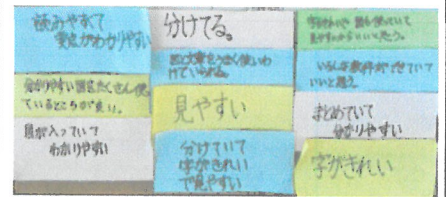 読みやすくて
要点がわかりやすい
分かりやすい図をたくさん使っ
ているところが良い。
図が入っていて
わかりやすい
分けてる。
図と文章をうまく使いわ
けていられる。
見やすい
分けていて
字がきれい
で見やすい
見やすいからいいと思う。
いろんな教科ができていて
いいと思う。
まとめていて
分かりやすい
字がきれい